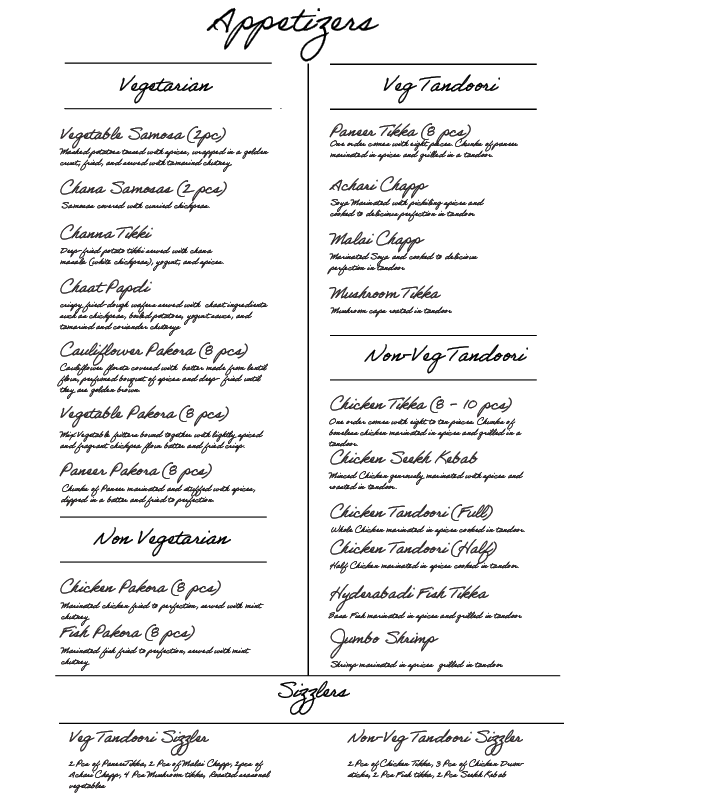 Appetizers
Vegetarian
Vegetable Samosa (2pc)
Mashed potatoes tossed with spices, wrapped in a golden
crust, fried, and served with tamarind chutney.
Chana Samosas (2 pcs)
Samosas covered with curried chickpeas.
Channa Tikki
Deep-fried potato tikki served with chana
masala (white chickpeas), yogurt, and spices.
Chaat Papdi
crispy fried-dough wafers served with chaat ingredients
such as chickpeas, boiled potatoes, yogurt sauce, and
tamarind and coriander chutneys
Cauliflower Pakora (8 pcs)
Cauliflower florets covered with batter made from lentil
flour, perfumed bouquet of spices and deep-fried until
they are golden brown.
Vegetable Pakora (8 pcs)
Mix Vegetable fritters bound together with lightly spiced
and fragrant chickpea flour batter and fried crisp.
Paneer Pakora (8 pcs)
Chunks of Paneer marinated and stuffed with spices,
dipped in a batter and fried to perfection.
Non Vegetarian
Chicken Pakora (8 pcs)
Marinated chicken fried to perfection, served with mint
chutney.
Fish Pakora (8 pcs)
Marinated fish fried to perfection, served with mint
chutney.
Veg Tandoori
Paneer Tikka (8 pcs)
One order comes with eight pieces. Chunks of paneer
marinated in spices and grilled in a tandoor.
Achari Chapp
Soya Marinated with pickiling spices and
cooked to delicious perfection in tandoor
Malai Chapp
Marinated Soya and cooked to delicious
perfection in tandoor
Mushroom Tikka
Mushroom caps roasted in tandoor
Non-Veg Tandoori
Chicken Tikka (8 - 10 pcs)
One order comes with eight to ten pieces. Chunks of
boneless chicken marinated in spices and grilled in a
tandoor.
Chicken Seekh Kebab
Minced Chicken generously marinated with spices and
roasted in tandoor.
Chicken Tandoori (Full)
Whole Chicken marinated in spices cooked in tandoor.
Chicken Tandoori (Half)
Half Chicken marinated in spices cooked in tandoor.
Hyderabadi Fish Tikka
Basa Fish marinated in spices and grilled in tandoor.
Jumbo Shrimp
Shrimp marinated in spices grilled in tandoor
Sizzlers
Veg Tandoori Sizzler
2 Pcs of Paneer Tikka, 2 Pcs of Malai Chapp, 2pcs of
Achari Chapp, 4 Pcs Mushroom tikka, Roasted seasonal
vegetables
Non-Veg Tandoori Sizzler
2 Pcs of Chicken Tikka, 3 Pcs of Chicken Drum-
sticks, 2 Pcs Fish tikka, 2 Pcs Seekh Kabab